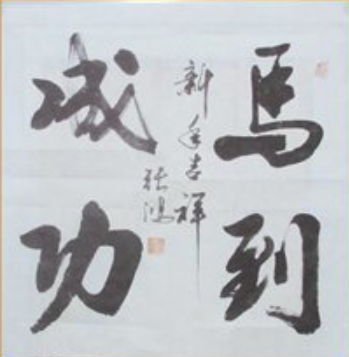 馬到
成功
新年吉祥
張鴻